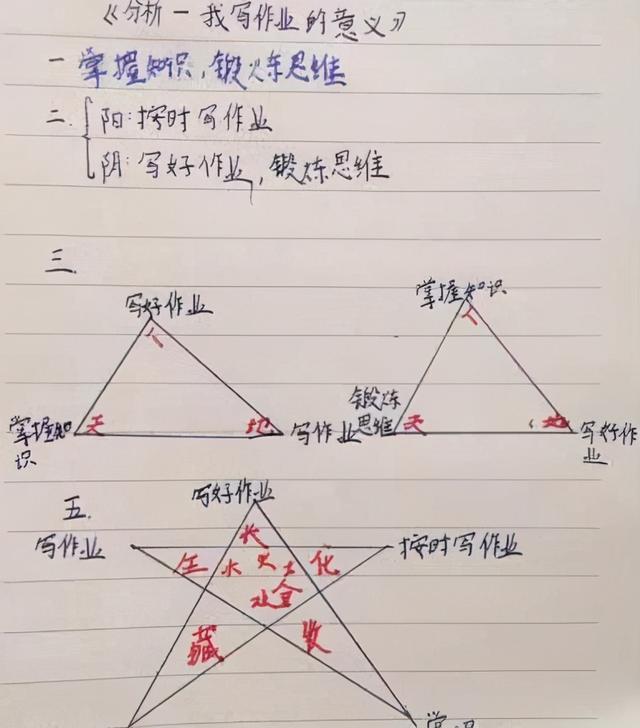 《分析一我写作业的意义》
一 掌握知识,锻炼思维
二 阳:按时写作业
阴:写好作业,锻炼思维
三.
写好作业
人
掌握知识
天
地
写作业
掌握知识
人
锻炼思维
天
地
写好作业
五.
写好作业
写作业
按时写作业
长
生
化
火 土
金
藏
收